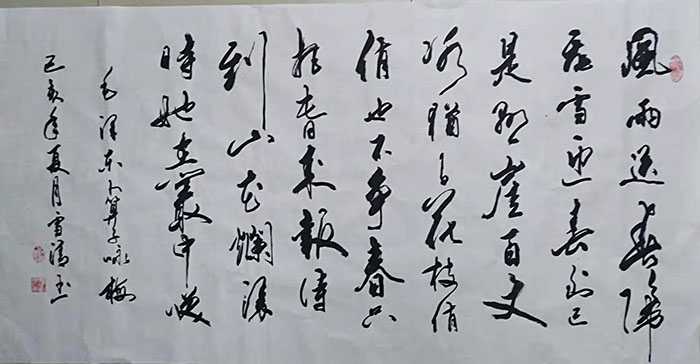 風雨送春歸
飛雪迎春到已
是懸崖百丈
冰猶有花枝俏
俏也不争春只
把春来報待
到山花爛漫
時她在叢中笑
毛澤东卜算子咏梅
己亥年夏月雪